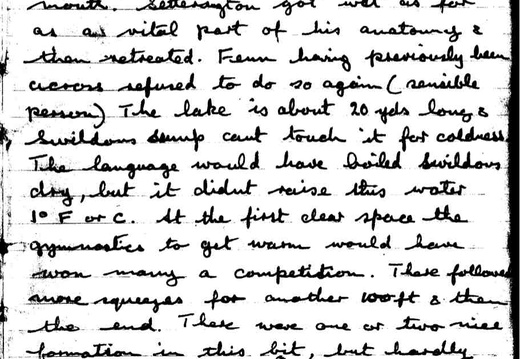 mouth. Settersington got wet as far
as a vital part of his anatomy &
then retreated. Fenn having previously been
across refused to do so again (sensible
person) The lake is about 20 yds long &
Swildons sump cant touch it for coldness.
The language would have boiled Swildons
dry, but it didnt raise this water
1° F or C. At the first clear space the
gymnastics to get warm would have
won many a competition. There followed
more squeezes for another 100ft & then
the end. There were one or two nice
formation in this bit, but hardly